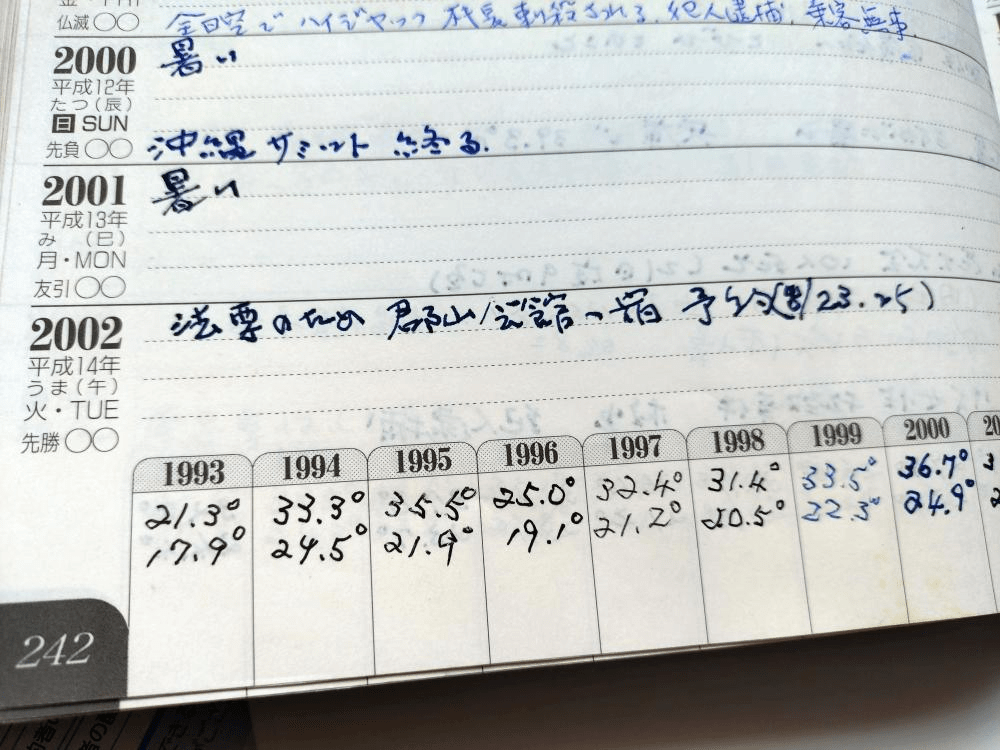 金・FRI
仏滅○○
全日空で ハイジャック 機長刺殺される. 犯人逮捕. 乗客無事.
2000
平成12年
たつ(辰)
日 SUN
先負○○
暑い
沖縄サミット 終る.
2001
平成13年
み (巳)
月・MON
友引○○
暑い
2002
平成14年
うま(午)
火・TUE
先勝○○
法要のため 郡山 会館 宿 予約( /23.25)
1993 1994 1995 1996 1997 1998 1999 2000 20
21.3° 33.3° 35.5° 25.0° 32.4° 31.4° 33.5° 36.7° 3
17.9° 24.5° 21.9° 19.1° 21.2° 20.5° 22.3° 24.9° 2
242